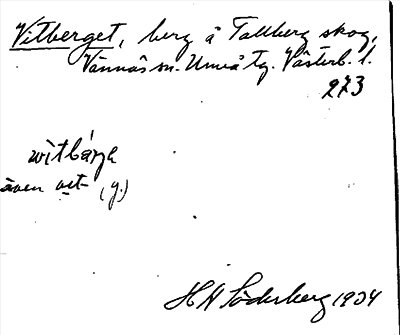 Vitberget, berg å Tallberg skog,
Vännäs sn. Umeå tg. Västerb. l.
273
witbárje
även vit- (y.)
H A Söderberg 1904